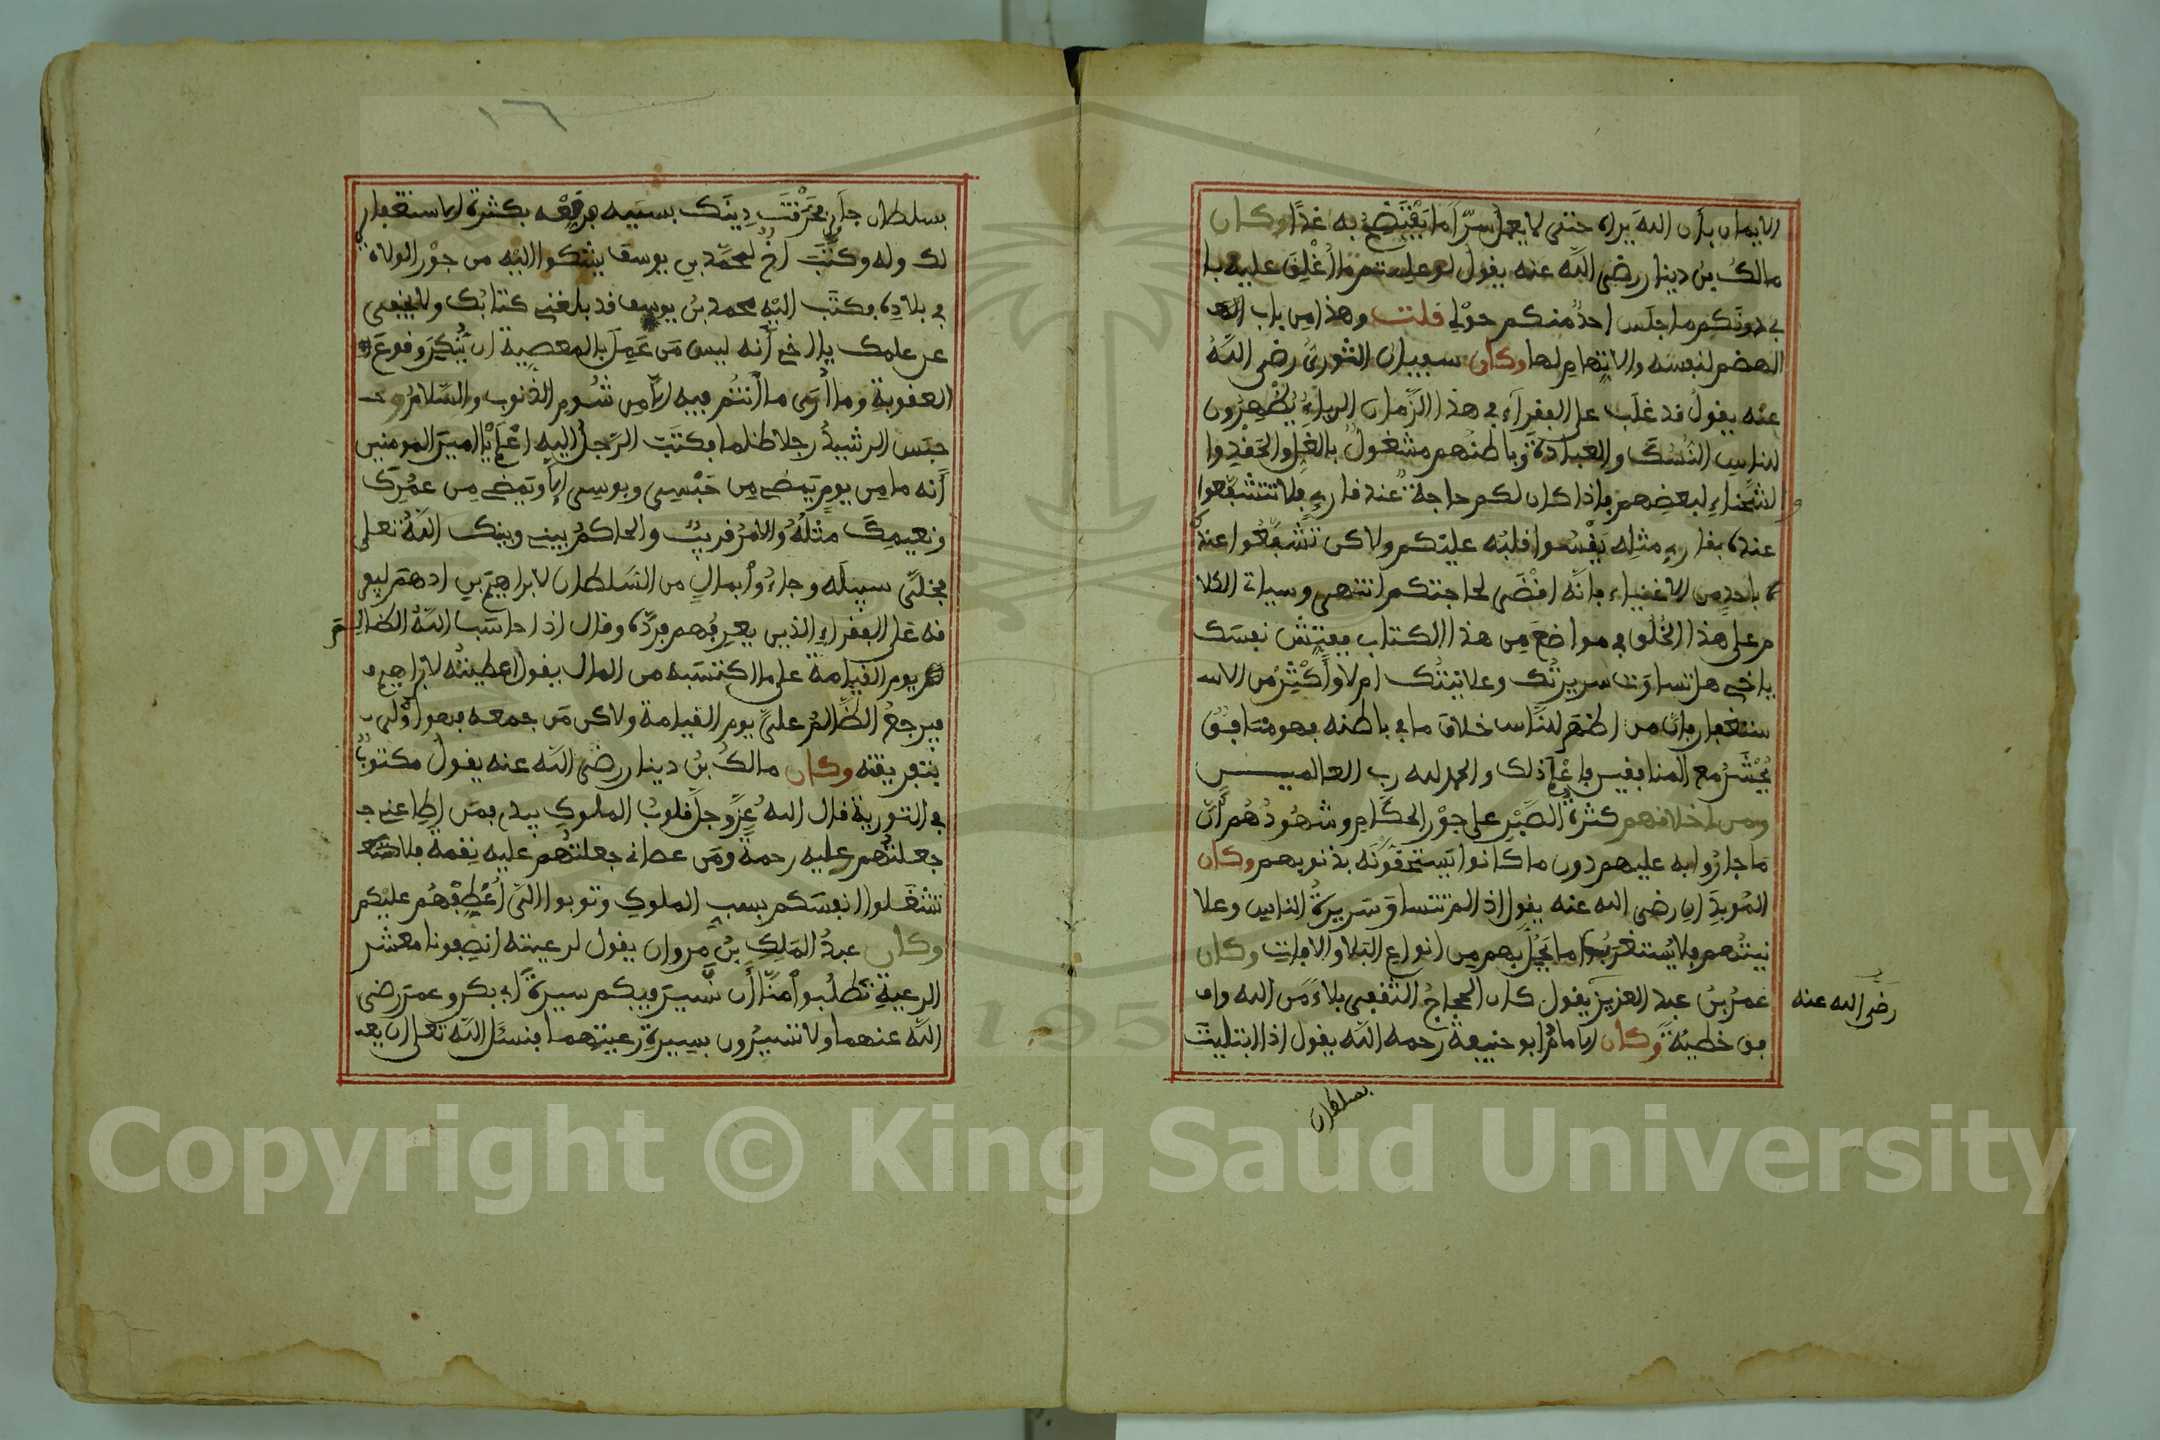 الايمان بان الله يراه حتى لا يعمل سرا ما يفتضح به غدا وكان
مالك بن دينار رضي الله عنه يقول لو علمتم ما أغلق عليه با
بي دونكم ما جلس احد منكم حولي قلت وهذا من باب
الهضم لنفسه والاتهام لها وكان سفيان الثوري رضي الله
عنه يقول قد غلب على الفقراء في هذا الزمان الرياء يظهرون
للناس النسك والعبادة وباطنهم مشغول بالغل والحقد وا
لشحناء لبعضهم فاذا كان لكم حاجة عند قارئ فلا تتشفعوا
عنده بقارئ مثله يقسوا قلبه عليكم ولاكن تشفعوا عند
باحد من الاغنياء فانه اقضى لحاجتكم انتهى وسياتي الكلا
م على هذا الخلق في مواضع من هذا الكتاب ففتش نفسك
يا اخي هل تساوت سريرتك وعلانيتك ام لا وأكثر من الاس
ستغفار فان من اظهر للناس خلاف ما في باطنه فهو منافق
يحشر مع المنافقين فاعلم ذلك والحمد لله رب العالميـــن
ومن اخلاقهم كثرة الصبر على جور الحكام وشهودهم أن
ما جاروا به عليهم دون ما كانوا يستحقونه بذنوبهم وكان
رضي الله عنه يقول اذا لم تتساو سريرة الناس وعلا
نيتهم فلا يستغرب ما يحل بهم من انواع البلاء والافات وكان
عمر بن عبد العزيز يقول كان الحجاج الثقفي بلاء من الله واف
رضي الله عنه
ق خطيئة وكان الامام ابو حنيفة رحمه الله يقول اذا ابتليت
بسلطان
١٦
بسلطان جائر فخرقت دينك بسببه فرقعه بكثرة الاستغفار
لك وله وكتب اخ لمحمد بن يوسف يشكوا اليه من جور الولاة
في بلاده فكتب اليه محمد بن يوسف قد بلغني كتابك ولا يخفى
عن علمك يا اخي أنه ليس من عمل بالمعصية ان ينكر وقوع
العقوبة وما أرى ما أنتم فيه الا من شوم الذنوب والسلام و
حبس الرشيد رجلا ظلما فكتب الرجل اليه اعلم يا امير المومنين
أنه ما من يوم يمضي من حبسي وبوسي الا ويمضي من عمرك
ونعيمك مثله والامر قريب والحاكم بيني وبينك الله تعلى
فخلى سبيله وجاءوا بمال من السلطان لابراهيم بن ادهم ليفر
قه على الفقراء الذين يعرفهم فرده وقال اذا حاسب الله الظالم
يوم القيامة على ما اكتسبه من المال يقول اعطيته لابراهيم
فيرجع الظالم علي يوم القيامة ولاكن من جمعه فهو أولى
بتفريقه وكان مالك بن دينار رضي الله عنه يقول مكتوب
في التورية قال الله عز وجل قلوب الملوك بيدي فمن اطاعني
جعلتهم عليه رحمة ومن عصاني جعلتهم عليه نقمة فلا
تشغلوا انفسكم بسب الملوك وتوبوا الي أعطفهم عليكم
وكان عبد الملك بن مروان يقول لرعيته انصفونا معشر
الرعية تطلبوا منا أن نسير فيكم سيرة أبي بكر وعمر رضي
الله عنهما ولا تسيرون بسيرة رعيتهما فنسئل الله تعلى ان يعـ